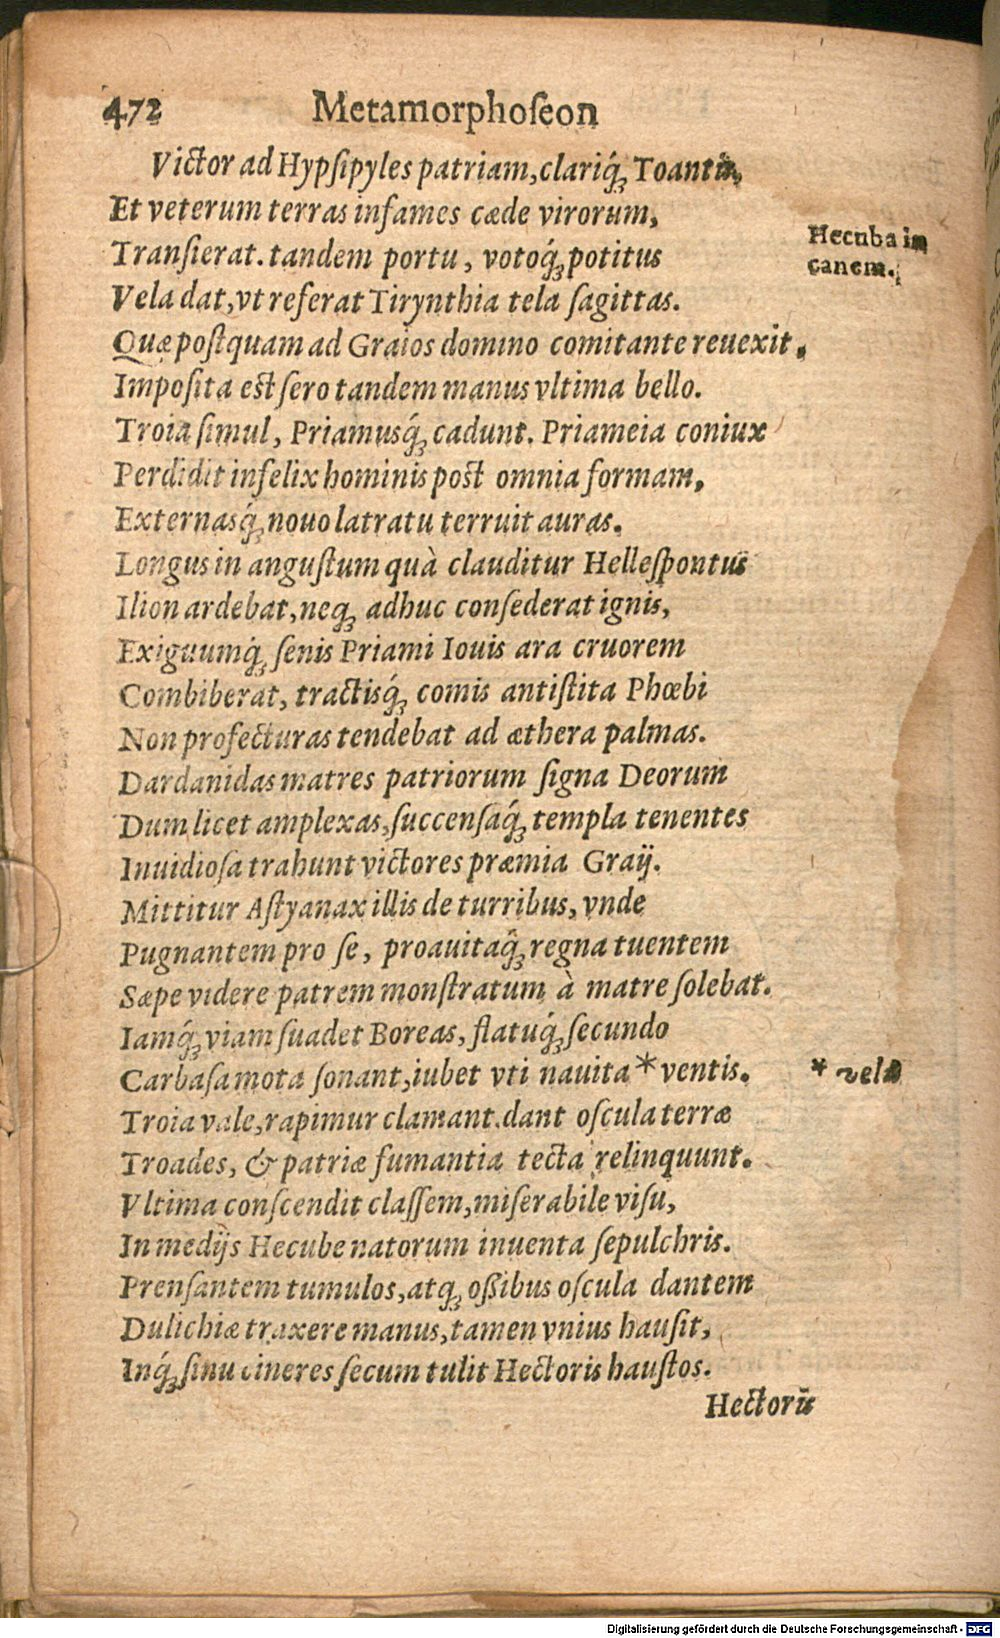 472 Metamorphoſeon
Victor ad Hypſipyles patriam, clariq́ꝫ Toantis,
Et veterum terras infames cæde virorum,
Hecuba in
Tranſierat. tandem portu, votoq́ꝫ potitus
canem.
Vela dat, vt referat Tirynthia tela ſagittas.
Quæ poſtquam ad Graios domino comitante reuexit,
Impoſita eſt ſero tandem manus vltima bello.
Troia ſimul, Priamusq́ꝫ cadunt. Priameia coniux
Perdidit infelix hominis poſt omnia formam,
Externasq́ꝫ nouo latratu terruit auras.
Longus in anguſtum quà clauditur Helleſpontus
Ilion ardebat, neqꝫ adhuc conſederat ignis,
Exiguumq́ꝫ ſenis Priami Iouis ara cruorem
Combiberat, tractisq́ꝫ comis antiſtita Phœbi
Non profecturas tendebat ad æthera palmas.
Dardanidas matres patriorum ſigna Deorum
Dum licet amplexas, ſuccenſaq́ꝫ templa tenentes
Inuidioſa trahunt victores præmia Graij.
Mittitur Aſtyanax illis de turribus, vnde
Pugnantem pro ſe, proauitaq́ꝫ regna tuentem
Sæpe videre patrem monſtratum à matre ſolebat.
Iamq́ꝫ viam ſuadet Boreas, flatuq́ꝫ ſecundo
Carbaſa mota ſonant, iubet vti nauita * ventis. * vela
Troia vale, rapimur clamant. dant oſcula terræ
Troades, & patriæ fumantia tecta relinquunt.
Vltima conſcendit claſſem, miſerabile viſu,
In medijs Hecube natorum inuenta ſepulchris.
Prenſantem tumulos, atqꝫ oſſibus oſcula dantem
Dulichiæ traxere manus, tamen vnius hauſit,
Inq́ꝫ ſinu cineres ſecum tulit Hectoris hauſtos.
Hectoris
Digitalisierung gefördert durch die Deutsche Forschungsgemeinschaft - DFG